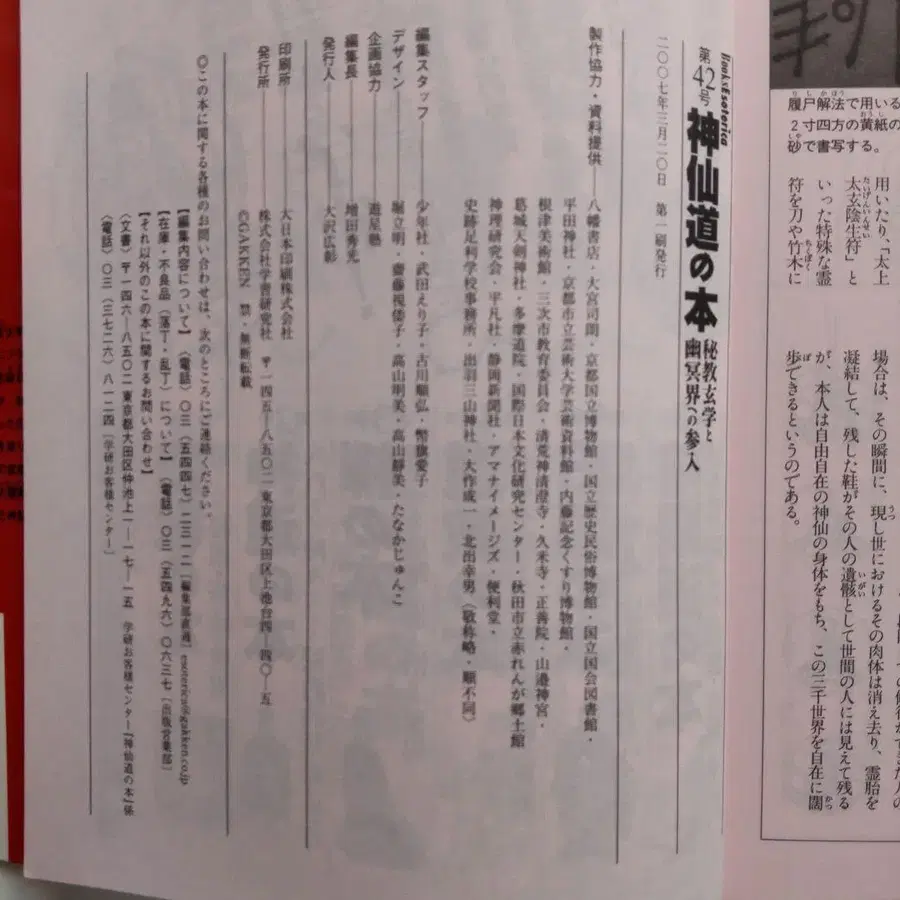 履尸解法で用いる
2寸四方の黄紙の
砂で書写する。
用いたり、「太上
太玄陰生符」と
いった特殊な霊
符を刀や竹木に
場合は、その瞬間に、現し世におけるその肉体は消え去り、霊胎を
凝結して、残した鞋がその人の遺骸として世間の人には見えて残る
が、本人は自由自在の神仙の身体をもち、この三千世界を自在に闊
歩できるというのである。
BooksEsoterica
第42号 神仙道の本 秘教玄学と幽冥界への参入
二〇〇七年三月二〇日 第一刷発行
製作協力・資料提供——八幡書店・大宮司朗・京都国立博物館・国立歴史民俗博物館・国立国会図書館・
平田神社・京都市立芸術大学芸術資料館・内藤記念くすり博物館・
根津美術館・三次市教育委員会・清荒神清澄寺・久米寺・正善院・山邊神宮・
葛城天剣神社・多摩道院・国際日本文化研究センター・秋田市立赤れんが郷土館
神理研究会・平凡社・静岡新聞社・アマナイメージズ・便利堂・
史跡足利学校事務所・出羽三山神社・大作成一・北出幸男（敬称略・順不同）
編集スタッフ——少年社・武田えり子・古川順弘・幣旗愛子
デザイン——堀立明・齋藤視倭子・高山明美・高山靜美・たなかじゅんこ
企画協力——遊星塾
編集長——増田秀光
発行人——大沢広彰
印刷所——大日本印刷株式会社
発行所——株式会社学習研究社 〒一四五-八五〇二 東京都大田区上池台四-四〇-五
©GAKKEN 禁・無断転載
◎この本に関する各種のお問い合わせは、次のところにご連絡ください。
【編集内容について】〈電話〉〇三（五四四七）二三一二［編集部直通］ esoterica@gakken.co.jp
【在庫・不良品（落丁・乱丁）について】〈電話〉〇三（五四九六）〇六三七［出版営業部］
【それ以外のこの本に関するお問い合わせ】
〈文書〉〒一四六-八五〇二 東京都大田区仲池上一-一七-一五 学研お客様センター『神仙道の本』係
〈電話〉〇三（三七二六）八一二四［学研お客様センター］